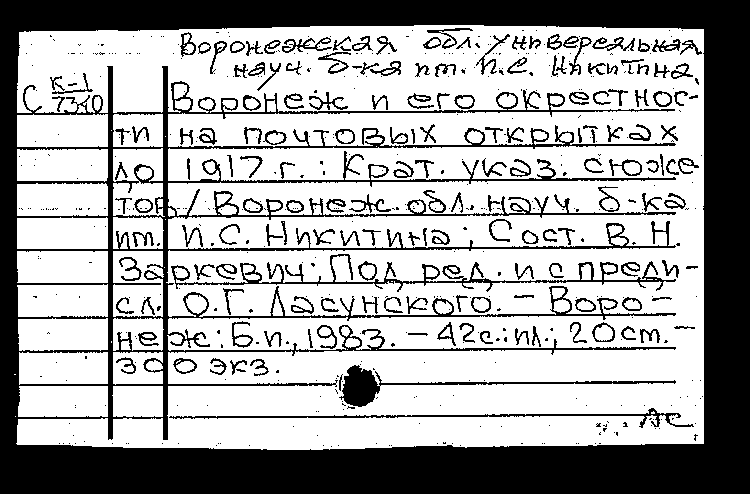 Воронежская обл. универсальная
науч. б-ка им. И.С. Никитина.
С К-1
7340
Воронеж и его окрестнос-
ти на почтовых открытках
до 1917 г.: Крат. указ. сюже
тов / Воронеж. обл. науч. б-ка
им. И.С. Никитина; Сост. В.Н.
Заркевич; Под ред. и с преди-
сл. О.Г. Ласунского. – Воро-
неж: Б.и., 1983. – 42с.: ил.; 20см. –
300 экз.
АС